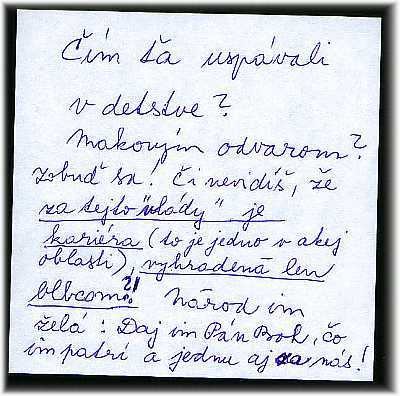 Čím ťa uspávali
v detstve?
Makovým odvarom?
Zobuď sa! Či nevidíš, že
za tejto "vlády" je
kariéra (to je jedno v akej
oblasti), vyhradená len
blbcom?!  Národ im
želá: Daj im Pán Boh, čo
im patrí a jednu aj za nás!